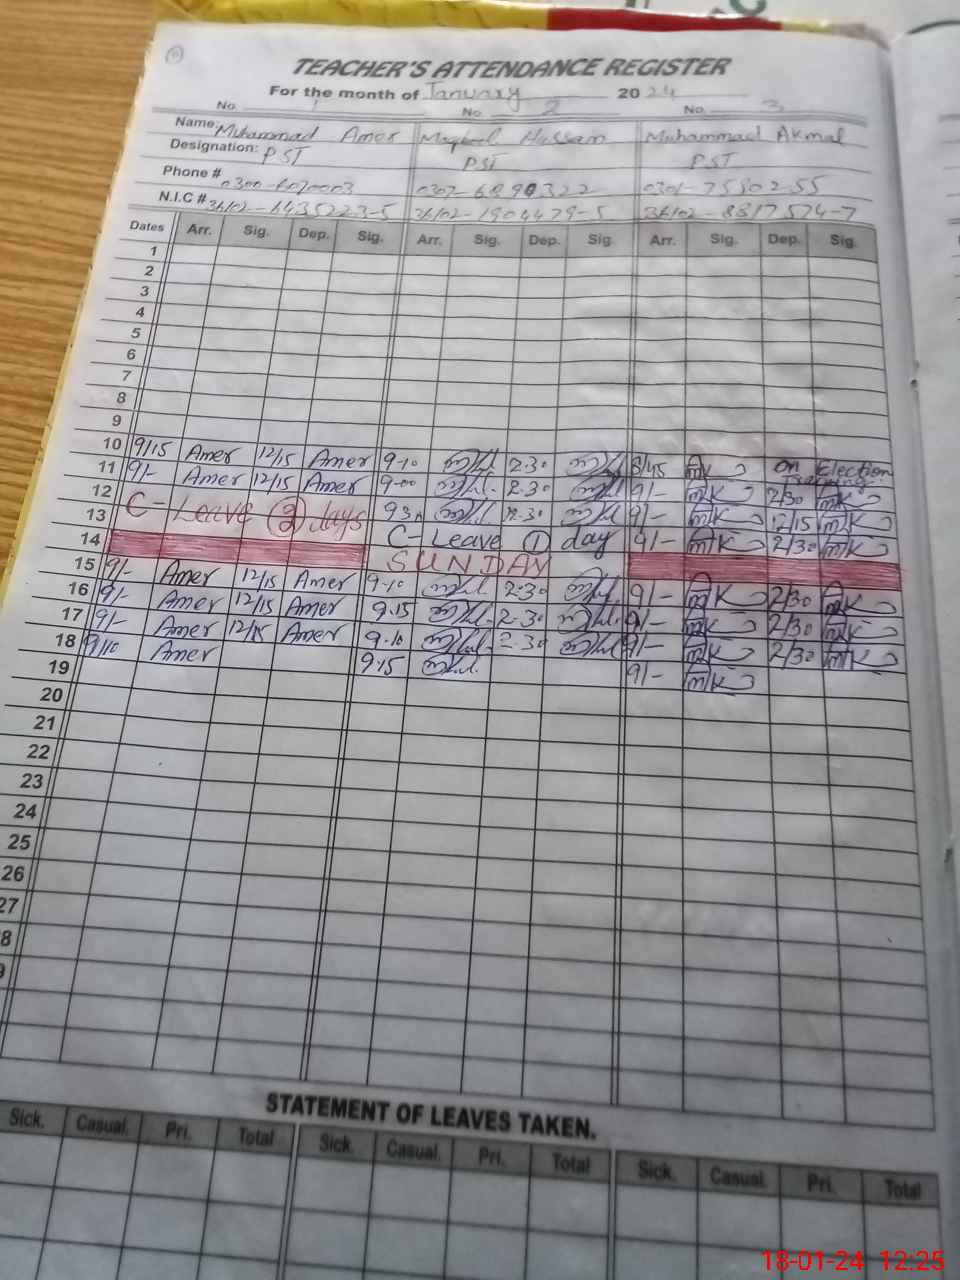 TEACHER'S ATTENDANCE REGISTER
For the month of January 2024
No. 1 No. 2 No. 3
Name: Muhammad Amer Maqbool Hussain Muhammad Akmal
Designation: PST PST PST
Phone # 0300-6070003 0307-6890322 0301-7550255
N.I.C # 36102-6435223-5 36102-1904479-5 36102-8817574-7
Dates Arr. Sig. Dep. Sig. Arr. Sig. Dep. Sig. Arr. Sig. Dep. Sig.
1
2
3
4
5
6
7
8
9
10 9/15 Amer 12/15 Amer 9-10 2-30 8/45 MK on Election Training
11 9/- Amer 12/15 Amer 9-00 2-30 9/- MK 2/30 MK
12 C- Leave 2 days 2-30 9/- MK 12/15 MK
13 C- Leave 1 day 9/- MK 2/30 MK
14 SUNDAY
15 9/- Amer 12/15 Amer 9-10 2-30 9/- MK 2/30 MK
16 9/- Amer 12/15 Amer 9.15 2-30 9/- MK 2/30 MK
17 9/- Amer 12/15 Amer 9-10 2-30 9/- MK 2/30 MK
18 9/10 Amer 9.15 9/- MK
19
20
21
22
23
24
25
26
27
8
9
STATEMENT OF LEAVES TAKEN.
Sick. Casual. Pri. Total Sick. Casual. Pri. Total Sick. Casual. Pri. Total
18-01-24 12:25